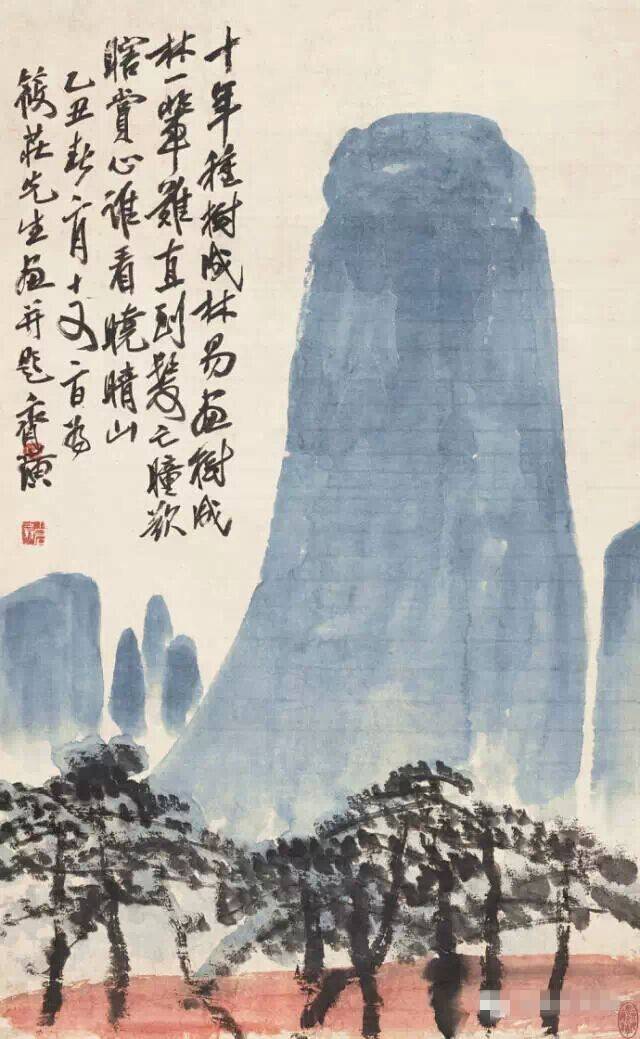 十年種樹成林易畫樹成
林一輩難直到髮亡瞳欲
瞎賞心誰看曉晴山
乙丑春二月十又二日為
筱莊先生畫并題齊璜